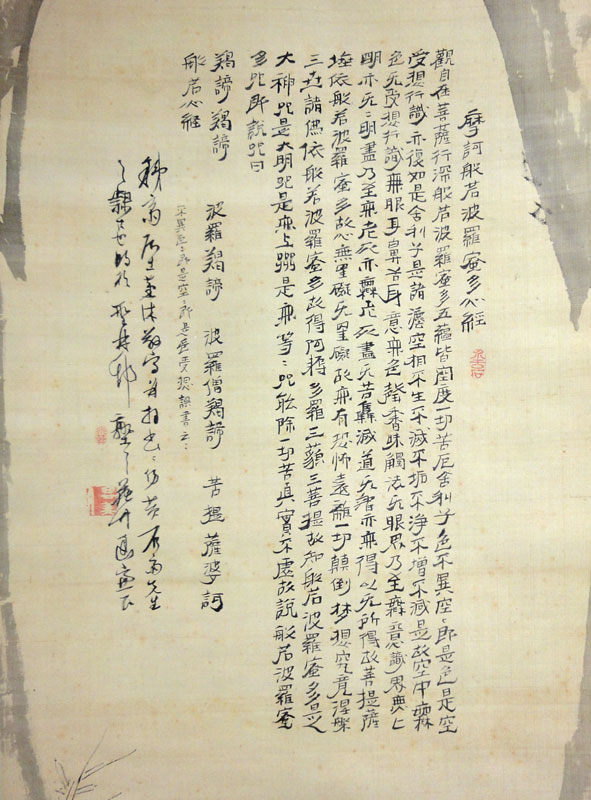 摩訶般若波羅蜜多心經
觀自在菩薩行深般若波羅蜜多五蘊皆空度一切苦厄舍利子色不異空〻即是色是空
受想行識亦復如是舍利子是諸法空相不生不滅不垢不淨不增不減是故空中無
色无受想行識無眼耳鼻舌身意無色聲香味觸法无眼界乃至無意識界無
明亦无〻明盡乃至無老死亦無老死盡无苦集滅道无智亦無得以无所得故菩提薩
埵依般若波羅蜜多故心無罣礙无罣礙故無有恐怖遠離一切顛倒夢想究竟涅槃
三世諸佛依般若波羅蜜多故得阿耨多羅三藐三菩提故知般若波羅蜜多是
大神咒是大明咒是無上咒是無等〻咒能除一切苦真實不虛故說般若波羅蜜
多咒即說咒曰
羯諦羯諦 波羅羯諦 波羅僧羯諦 菩提薩婆訶
般若心經
不異色〻即是空〻即是色受想誤書云〻
先生